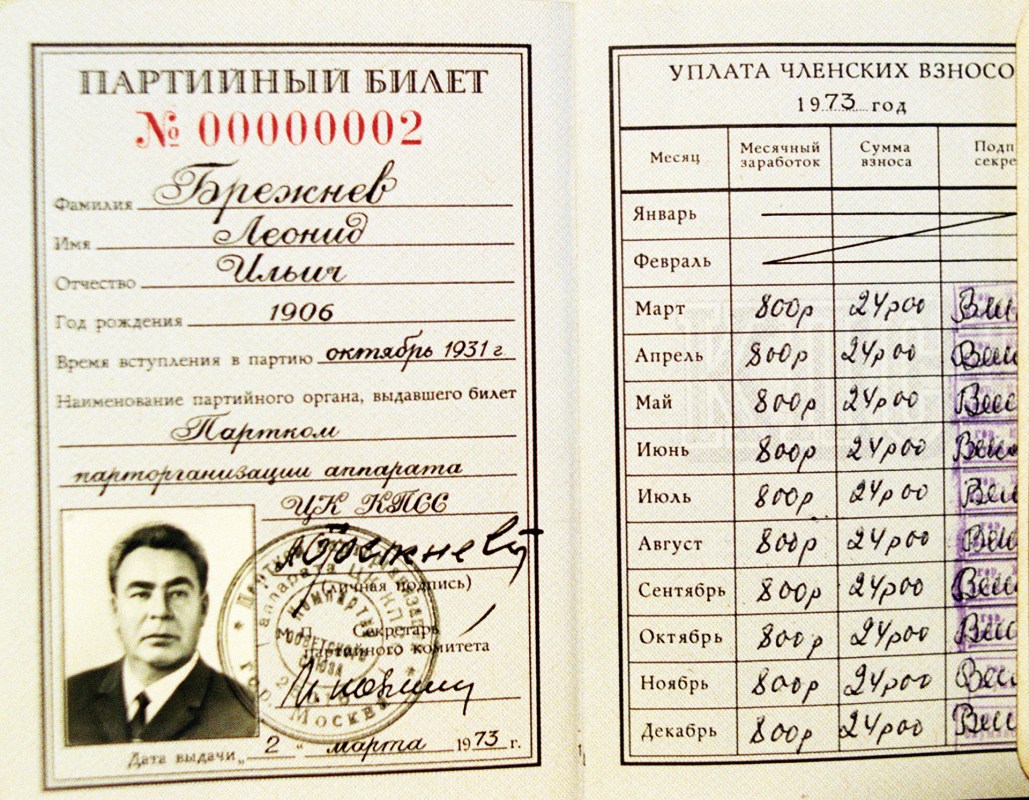 ПАРТИЙНЫЙ БИЛЕТ
№ 00000002
Фамилия Брежнев
Имя Леонид
Отчество Ильич
Год рождения 1906
Время вступления в партию октябрь 1931 г.
Наименование партийного органа, выдавшего билет
Партком
парторганизации аппарата
ЦК КПСС
(личная подпись)
М.П. Секретарь
партийного комитета
Дата выдачи „2“ марта 1973 г.
гор. Москва
УПЛАТА ЧЛЕНСКИХ ВЗНОСО
1973 год
Месяц Месячный заработок Сумма взноса Подп секре
Январь
Февраль
Март 800р 24р00
Апрель 800р 24р00
Май 800р 24р00
Июнь 800р 24р00
Июль 800р 24р00
Август 800р 24р00
Сентябрь 800р 24р00
Октябрь 800р 24р00
Ноябрь 800р 24р00
Декабрь 800р 24р00